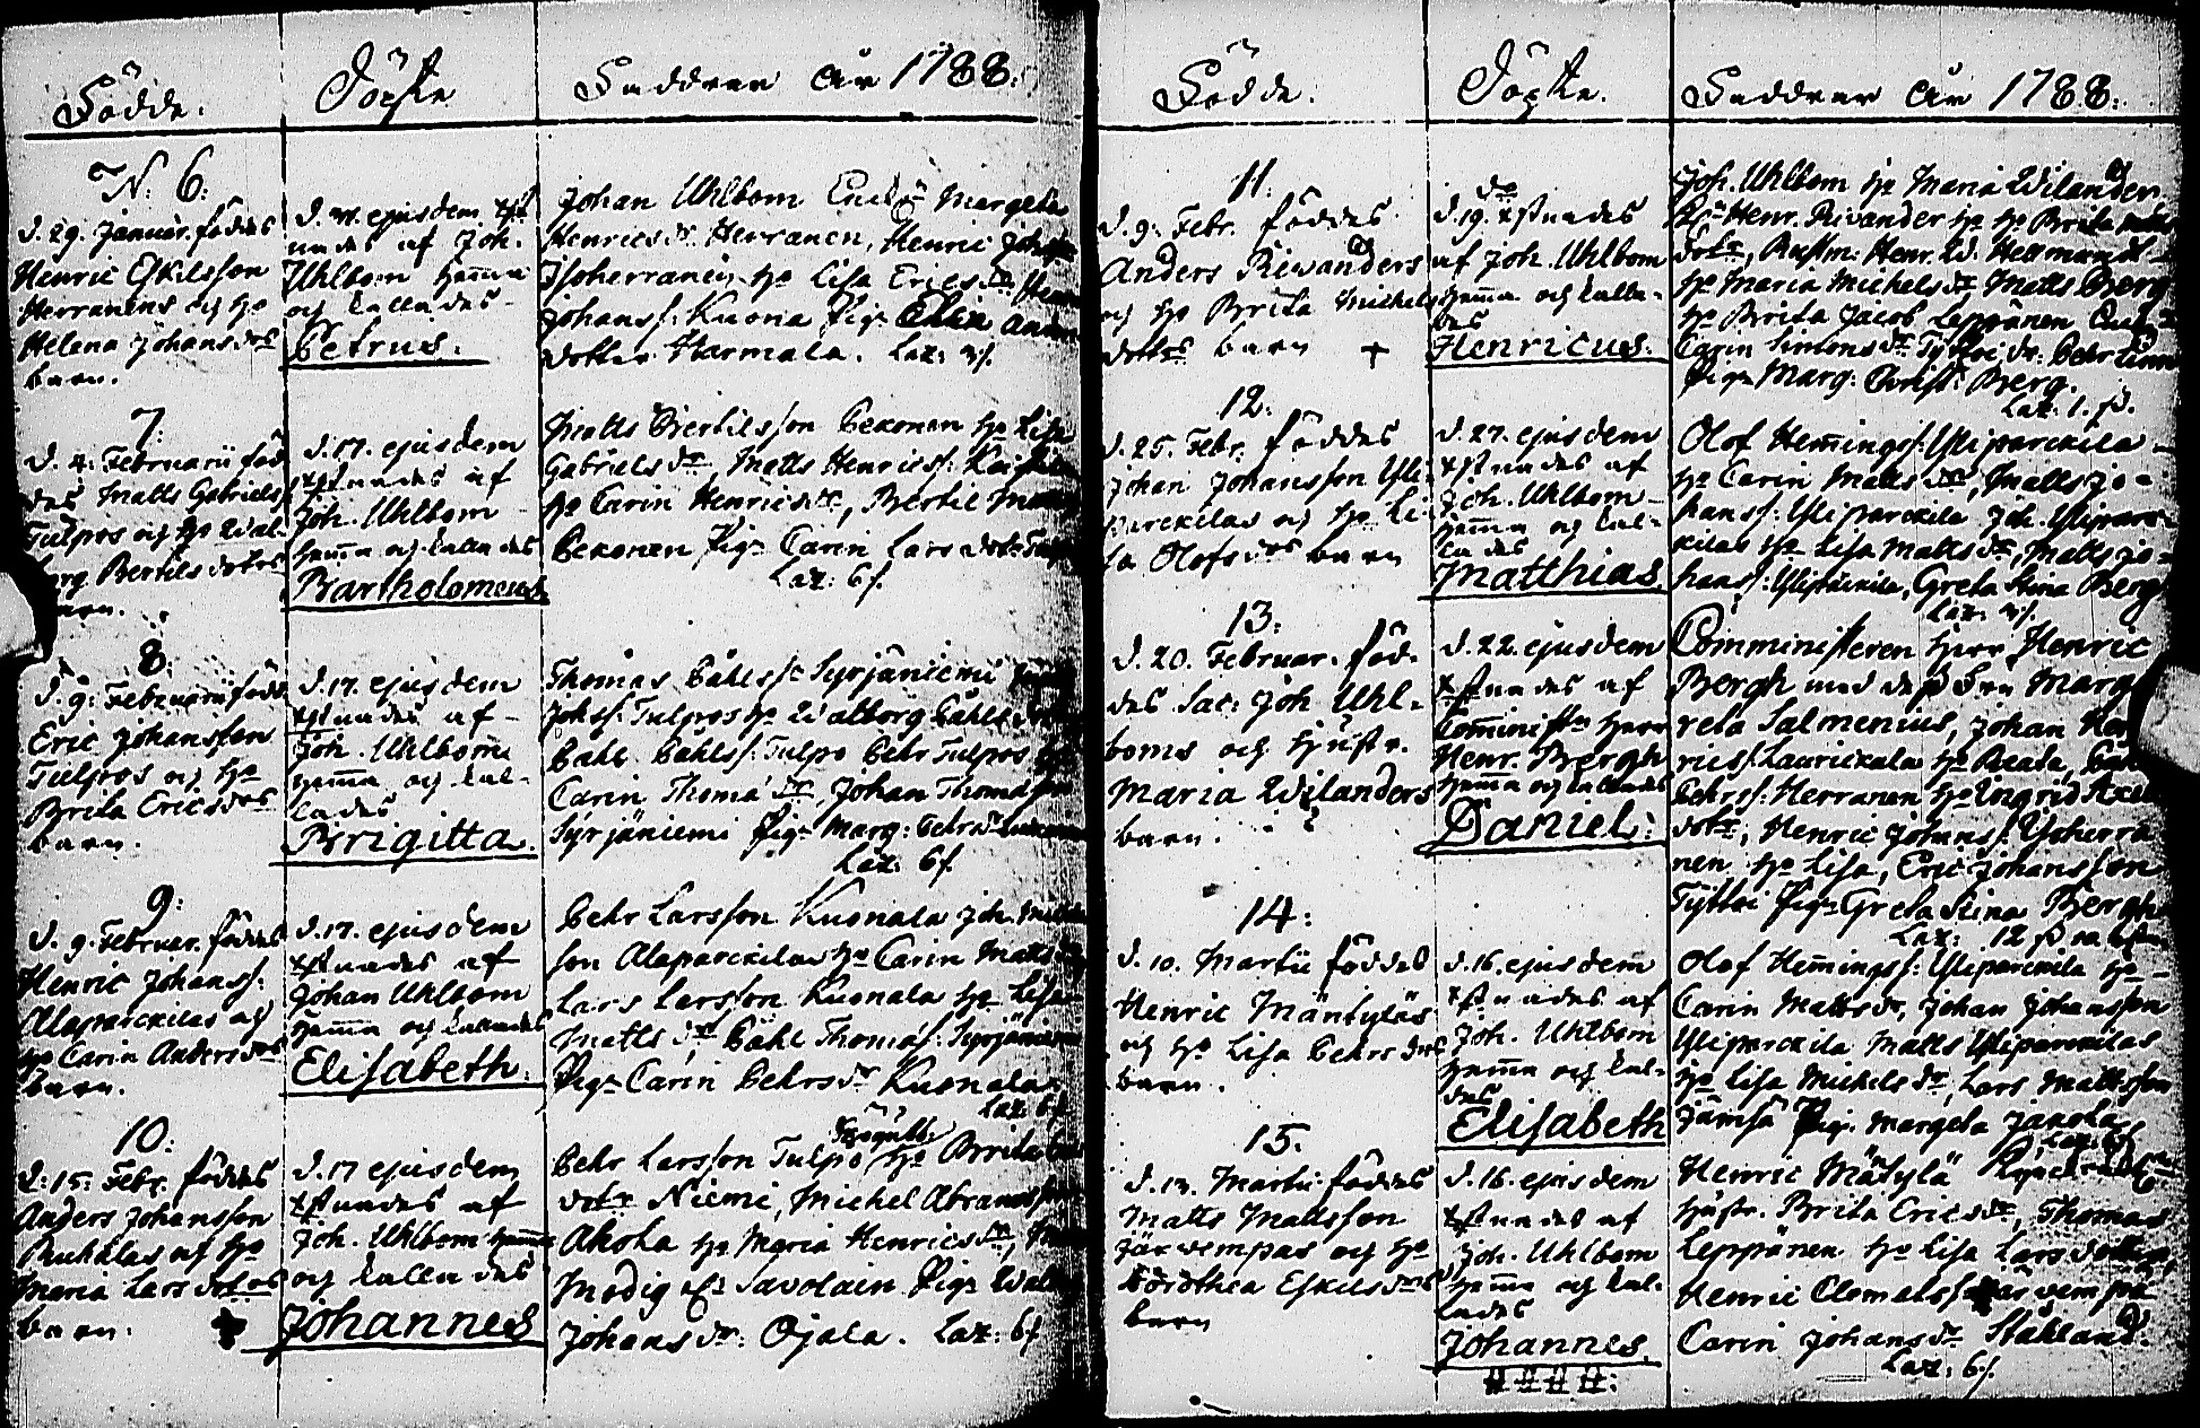 Födde.
Döpte
Faddrar År 1788:
N: 6:
d. 29. Januar. föddes
Henric Eskilsson
Herranens och H:o
Helena Johans drs
barn.
d. ejusdem Xst
nades af Joh.
Uhlbom hemma
och kallades
Petrus.
Johan Uhlbom Margeta
Henrics dr. Herranen, Henric
Isoherranen H:o Lisa Erics dr
Johans s: Kuona Pig:
dotter Harmala. Laz:
7:
d. Februarii föd
des Matts Gabriels
Tulpos och H:o Wal-
borg Bertils dotrs
barn.
d. 17. ejusdem
Xstnades af
Joh. Uhlbom
hemma och kallades
Bartholomeus
Matts Bertilsson Pekonen H:o Lisa
Gabriels dr, Matts Henrics s:
H:o Carin Henrics dr, Bertil
Pekonen Pig: Carin Lars dotr
Laz: 6 s.
8:
d. 9: Februarii född
Eric Johansson
Tulpos och H:o
Brita Erics drs
barn.
d. 17. ejusdem
Xstnades af
Joh. Uhlbom
hemma och kal-
lades
Brigitta.
Thomas Påhls s: Syrjäniemi
Johs s: Tulpos H:o Walborg Påhls
Påhl Påhls s: Tulpo Pehr Tulpos
Carin Thomæ dr, Johan Thomæ
Syrjäniemi Pig: Marg: Pehrs dr
Laz: 6 s.
9:
d. 9. Februar. föddes
Henric Johans s:
Alaparckilas och
H:o Carin Anders drs
barn.
d. 17. ejusdem
Xstnades af
Johan Uhlbom
hemma och kallades
Elisabeth.
Pehr Larsson Kuonala Joh.
son Alaparckilas H:o Carin Matts dr
Lars Larsson Kuonala H:o Lisa
Matts dr Påhl Thomæ s: Syrjäniemi
Pig: Carin Pehrs dr Kuonala
Laz: 6 s.
10:
d: 15: Febr. föddes
Anders Johansson
H:o
Maria Lars dotrs
barn.
d. 17 ejusdem
Xstnades af
Joh. Uhlbom hemma
och kallades
Johannes
Pehr Larsson Tulpo H:o Brita
dotr Niemi, Michel Abramsson
Ahola H:o Maria Henrics dr,
Modig Savolain Pig: Walb
Johans dr: Ojala. Laz: 6 s
Födde.
Döpte.
Faddrar År 1788:
11:
d. 9: Febr. föddes
Anders Riwanders
och H:o Brita Michels
dotrs barn +
d. 19. Xstnades
af Joh. Uhlbom
hemma och kalla-
des
Henricus.
Joh. Uhlbom H:o Maria Wilander
Henr. Riwander H:o H:o Brita
dotr, Rustm: Henr. W. Hellmandt
H:o Maria Michels dr Matts Berg
H:o Brita Jacob Leppänen
Carin Simons dr Tyttoi dr: Pehr
Pig: Marg: Christ: Berg.
Laz: 1.
12:
d. 25. Febr. föddes
Johan Johansson Yli-
parckilas och H:o Li-
sa Olofs drs barn
d. 27. ejusdem
Xstnades af
Joh. Uhlbom
hemma och kal-
lades
Matthias.
Olof Hemings s: Yliparckila
H:o Carin Matts dr, Matts Jo-
hans s: Yliparckila Joh. Ylipar-
kilas H:o Lisa Matts dr, Matts Jo-
hans s: Yliparckila, Greta Stina Berg
Laz:
13:
d. 20. Februar. föd-
des Sac: Joh Uhl-
boms och Hustr.
Maria Wilanders
barn.
d. 22. ejusdem
Xstnades af
Comministr Herr
Henr. Bergh
hemma och kallades
Daniel.
Comministeren Herr Henric
Bergh med dess Fru Marga
reta Salmenius, Johan Hen
rics s. Laurickala H:o Beata,
Pehrs s: Herranen H:o Ingrid Axel
dotr, Henric Johans s. Ysoherra-
nen H:o Lisa, Eric Johansson
Tyttoi Pig: Greta Stina Bergh
Laz: 12
14:
d. 10. Martii föddes
Henric Mäntyläs
och H:o Lisa Pehrs drs
barn.
d. 16. ejusdem
Xstnades af
Joh. Uhlbom
hemma och kal-
des
Elisabeth
Olof Hemings s: Yliparckila H:o
Carin Matts dr, Johan Johansson
Yliparckila Matts Yliparckilas
H:o Lisa Michels dr, Lars Mattsson
Jämsä Pig: Margeta Janola
Laz: 6 s.
15.
d. 13. Martii föddes
Matts Mattsson
Järwempas och H:o
Dorothea Eskils drs
barn
d. 16. ejusdem
Xstnades af
Joh. Uhlbom
hemma och kal-
lades
Johannes.
Henric Mätylä
Hustr. Brita Erics dr, Thomas
Leppänen H:o Lisa Lars dotter,
Henric Clemets s Järwempä
Carin Johans dr Ståhland.
Laz: 6 s.